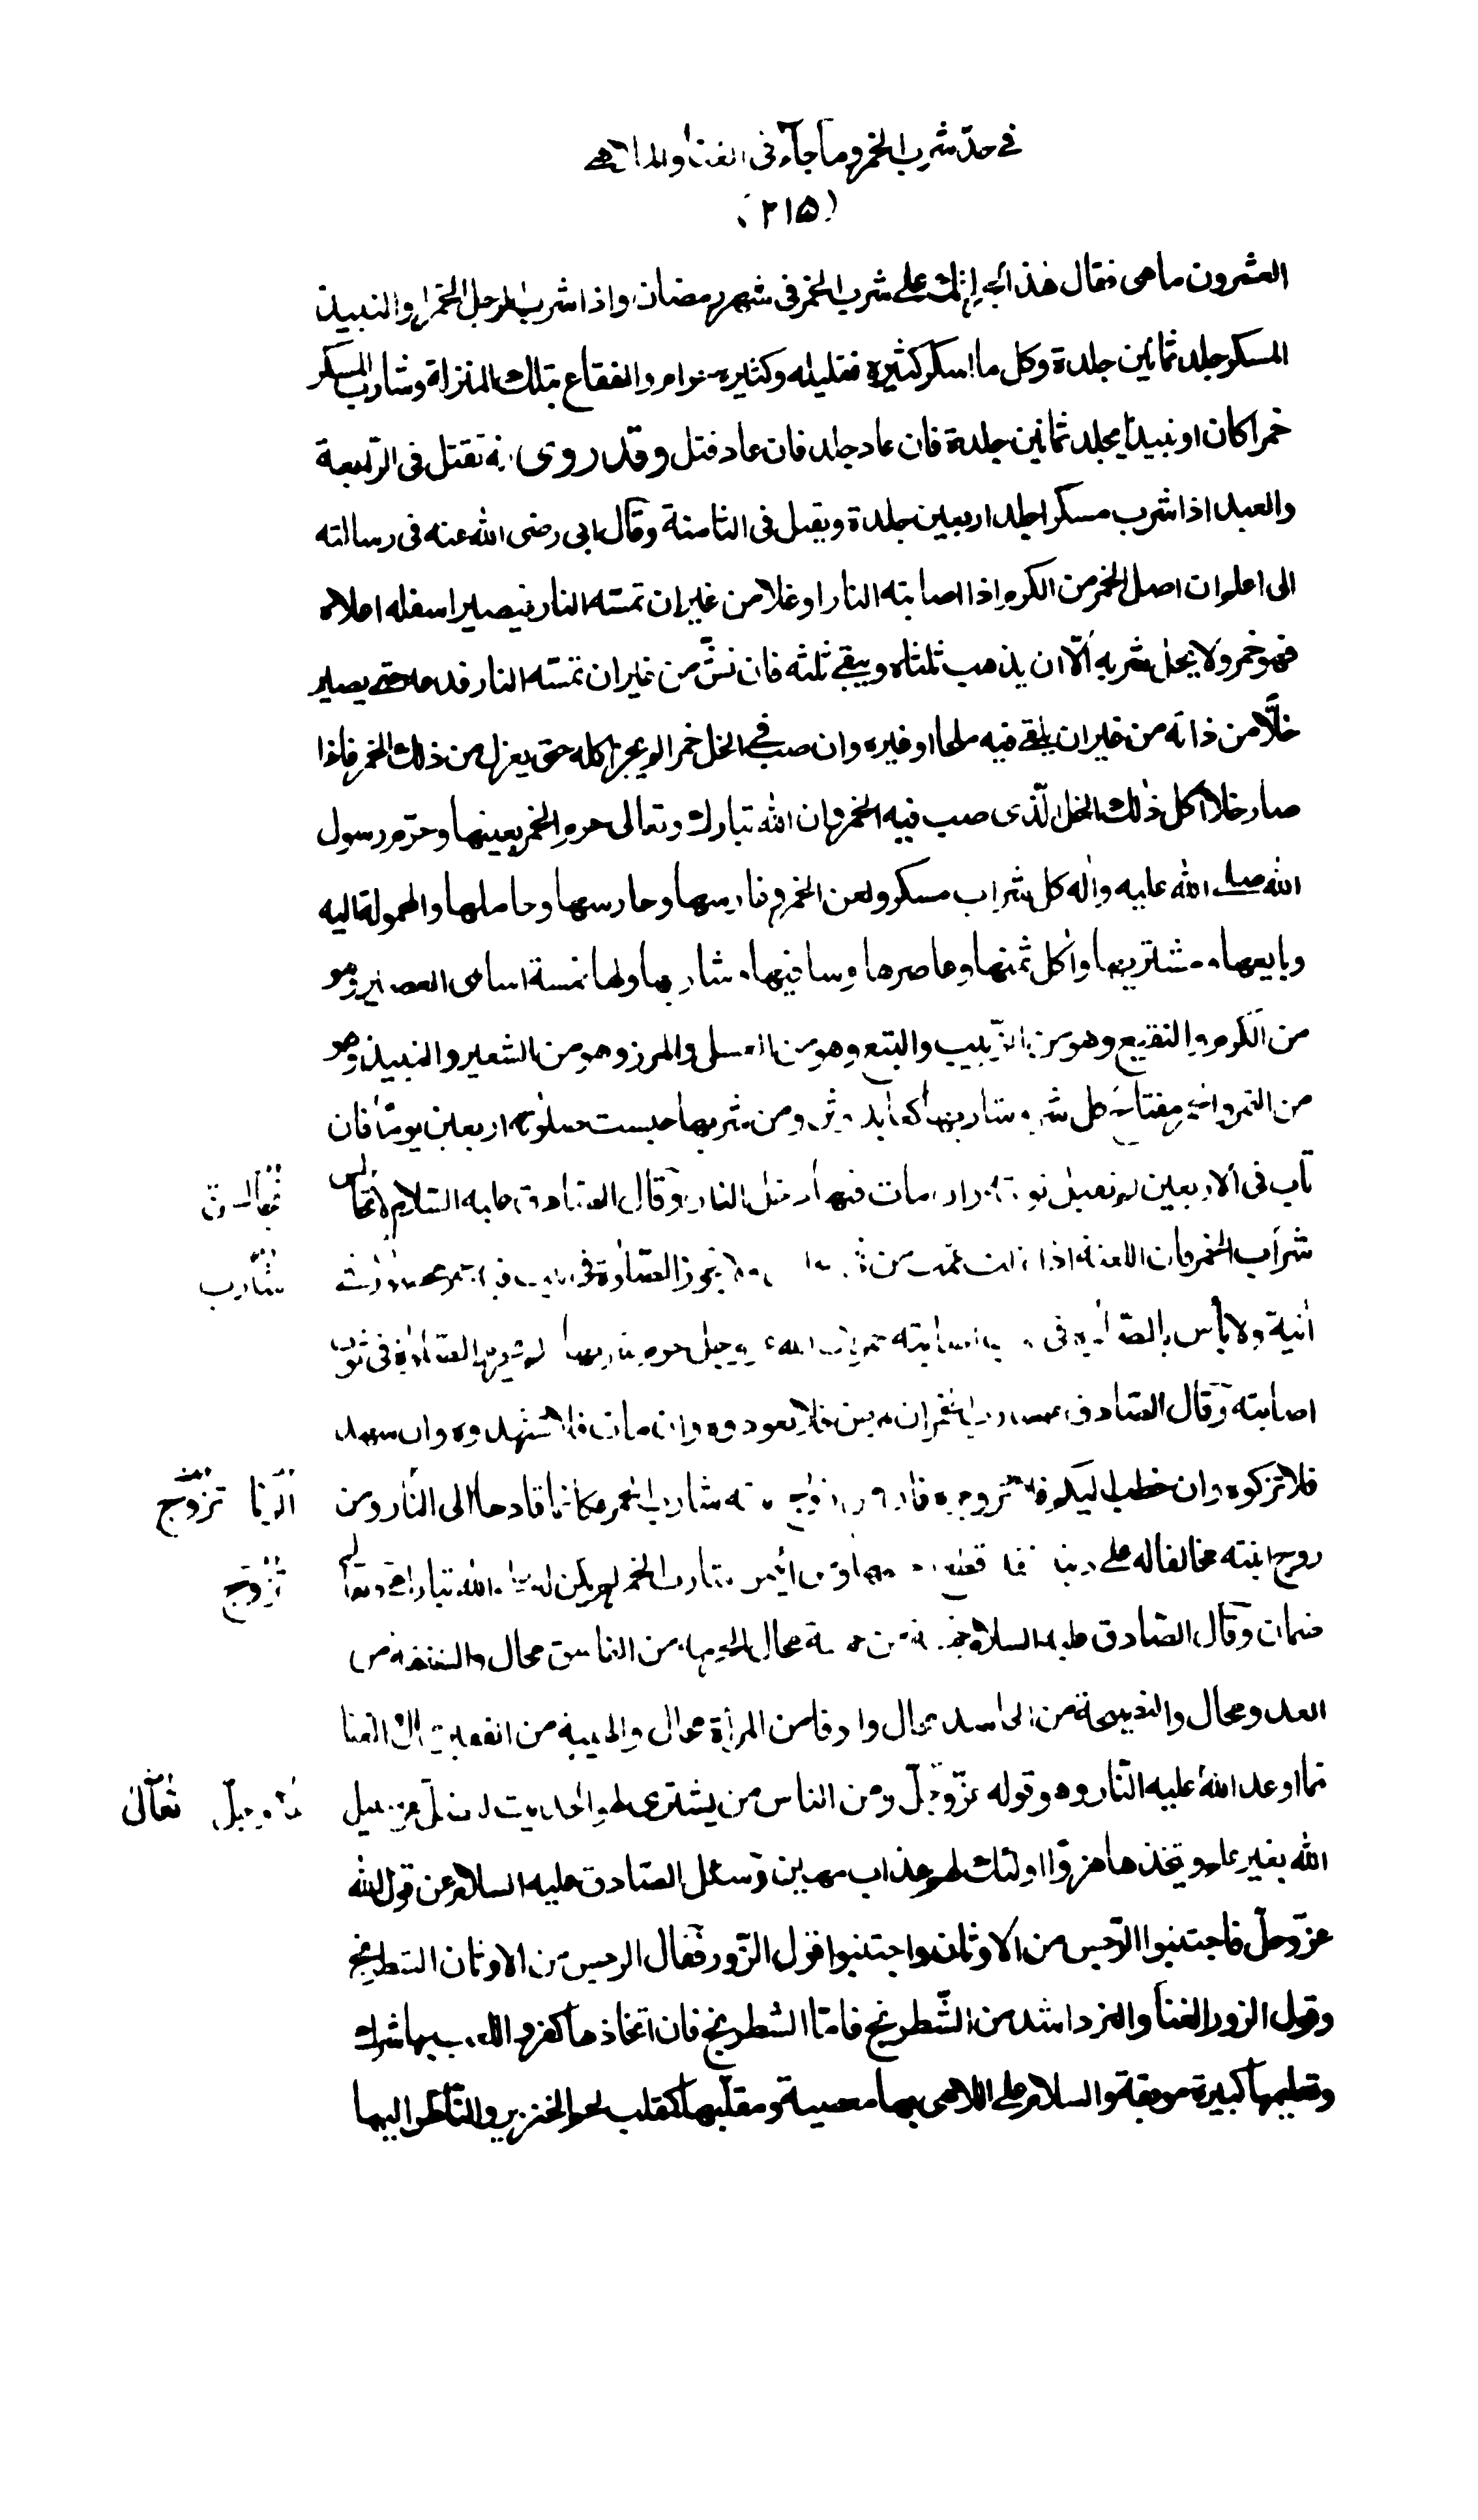 في حدّ شرب الخمر وما جآء فى الغنآ والملاهي
(٢١٥)
العشرون ماهى فقال هذا لجرأتك على شرب الخمر فى شهر رمضان واذا شرب الرجل الخمر او النبيذ
المسكر جلد ثمانين جلدة وكل ما اسكر كثيره فقليله وكثيره حرام والفقاع بتلك المنزلة وشارب المسكر
خمرا كان او نبيذا يجلد ثمانين جلدة فان عاد جلد فان عاد قتل وقد روى انه يقتل فى الرّابعة
والعبد اذا شرب مسكرا جلد اربعين جلدة ويقتل فى الثامنة وقال ابى رضى الله عنه فى رسالته
الى اعلم ان اصل الخمر من الكرم اذا اصابته النار او غلا من غير ان تمسّه النار فيصير اسفله اعلاه
فهو خمر ولا يحل شربه الّا ان يذهب ثلثاه ويبقى ثلثه فان نشّ من غير ان تمسّه النار فدعه حتى يصير
خلّا من ذاته من غير ان يلقى فيه ملحا او غيره وان صب في الخل خمر الم يجز اكله حتى يعزل من ذلك الخمر فاذا
صار خلا اكل ذلك الخل الّذى صب فيه الخمر فان الله تبارك وتعالى حرم الخمر بعينها وحرّم رسول
الله صلى الله عليه واله كل شراب مسكر ولعن الخمر وغارسها وحارسها وحاملها والمحمولة اليه
وبايعها ومشتريها واكل ثمنها وعاصرها وساقيها وشاربها ولها خمسة اسامى العصير وهو
من الكرم والنقيع وهو من الزّبيب والبتع وهو من العسل والمرز وهو من الشعير والنبيذ وهو
من التمر والخمر مفتاح كل شر وشاربها كعابد وثن ومن شربها حبست صلوته اربعين يوما فان
تاب فى الاربعين لم تقبل توبته وان مات فيها دخل النار وقال الصادق عليه السّلام لا تجالس
شراب الخمر فان اللعنة اذا نزلت عمّت من فى ولا يجوز الصّلوة فى بيت فيه خمر محصور فى
انية ولا بأس بالصّلوة فى ثوب اصابته خمر لان الله عز وجل حرم شربها ولم يحرم الصّلوة فى ثوب
اصابته وقال الصّادق شارب الخمر ان مرض فلا تعودوه وان مات فلا تشهدوه وان شهد
فلا تزكوه وان خطب اليكم فلا تزوجوه فان من زوج ابنته شارب الخمر فكانما قادها الى النار ومن
زوج ابنته مخالفا له على دينه فقد قطع رحمها ومن ائتمن شارب الخمر لم يكن له على الله تبارك وتعالى
ضمان وقال الصّادق عليه السلام خمسة من خمسة محال الحرمة من الفاسق محال والشفقة من
العدو محال والنصيحة من الحاسد محال والوفا من المرأة محال والهيبة من الفقير محال الغنا
مما اوعد الله عليه النّار وهو قوله عزّوجلّ ومن الناس من يشترى لهو الحديث ليضل عن سبيل
الله بغير علم ويتخذها هزوا اولئك لهم عذاب مهين وسئل الصّادق عليه السلام عن قول الله
عزّوجلّ فاجتنبوا الرّجس من الاوثان واجتنبوا قول الزّور فقال الرجس من الاوثان الشطرنج
وقول الزور الغنآ والنرد اشد من الشّطرنج فامّا الشطرنج فان اتخاذها كفر واللعب بها شرك
وتعليمها كبيرة موبقة والسلام على اللاهى بها معصية ومقلّبها كمقلب لحم الخنزير والنّاظر اليها
شارب
الزنا تزوّج
تزوّج
عزّ وجلّ تعالى